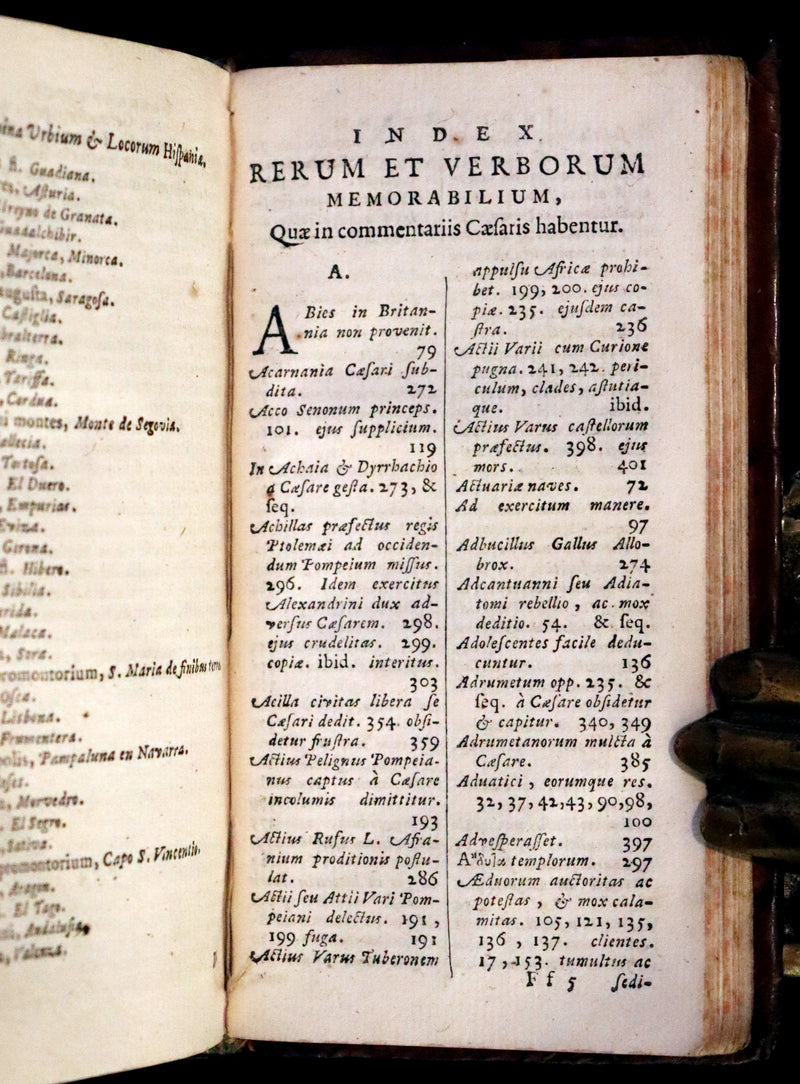 Urbium & Locorum Hispaniæ.
Guadiana.
Asturia.
de Granata.
Majorca, Minorca.
Barcelona.
Saragosa.
Castiglia.
Tariffa.
montes, Monte de Segovia.
Tortosa.
El Duero.
Empurias.
Girona.
Hibero.
Sibilia.
Malaca.
promontorium, S. Maria de finibus
Lisbona.
Frumentera.
Pampaluna en Navarra.
Morvedre.
El Segre.
promontorium, Capo S. Vincentii,
Aragon.
El Tago.
INDEX
RERUM ET VERBORUM
MEMORABILIUM,
Quæ in commentariis Cæsaris habentur.
A.
ABies in Britan-
nia non provenit.
79
Acarnania Cæsari sub-
dita. 272
Acco Senonum princeps.
101. ejus supplicium.
119
In Achaia & Dyrrhachio
a Cæsare gesta. 273, &
seq.
Achillas præfectus regis
Ptolemæi ad occiden-
dum Pompeium missus.
296. Idem exercitus
Alexandrini dux ad-
versus Cæsarem. 298.
ejus crudelitas. 299.
copiæ. ibid. interitus.
303
Acilla civitas libera se
Cæsari dedit. 354. obsi-
detur frustra. 359
Actius Pelignus Pompeia-
nus captus à Cæsare
incolumis dimittitur.
193
Actius Rufus L. Afra-
nium proditionis postu-
lat. 286
Actii seu Attii Vari Pom-
peiani delectus. 191,
199 fuga. 191
Actius Varus Tuberonem
appulsu Africæ prohi-
bet. 199, 200. ejus co-
piæ. 235. ejusdem ca-
stra. 236
Actii Varii cum Curione
pugna. 241, 242. peri-
culum, clades, astutia-
que. ibid.
Actius Varus castellorum
præfectus. 398. ejus
mors. 401
Actuariæ naves. 72
Ad exercitum manere.
97
Adbucillus Gallus Allo-
brox. 274
Adcantuanni seu Adia-
tomi rebellio, ac mox
deditio. 54. & seq.
Adolescentes facile dedu-
cuntur. 136
Adrumetum opp. 235. &
seq. à Cæsare obsidetur
& capitur. 340, 349
Adrumetanorum multta à
Cæsare. 385
Aduatici, eorumque res.
32, 37, 42, 43, 90, 98,
100
Advesperasset. 397
templorum. 297
Æduorum auctoritas ac
potestas, & mox cala-
mitas. 105, 121, 135,
136, 137. clientes.
17, 153. tumultus ac
Ff 5 sedi-